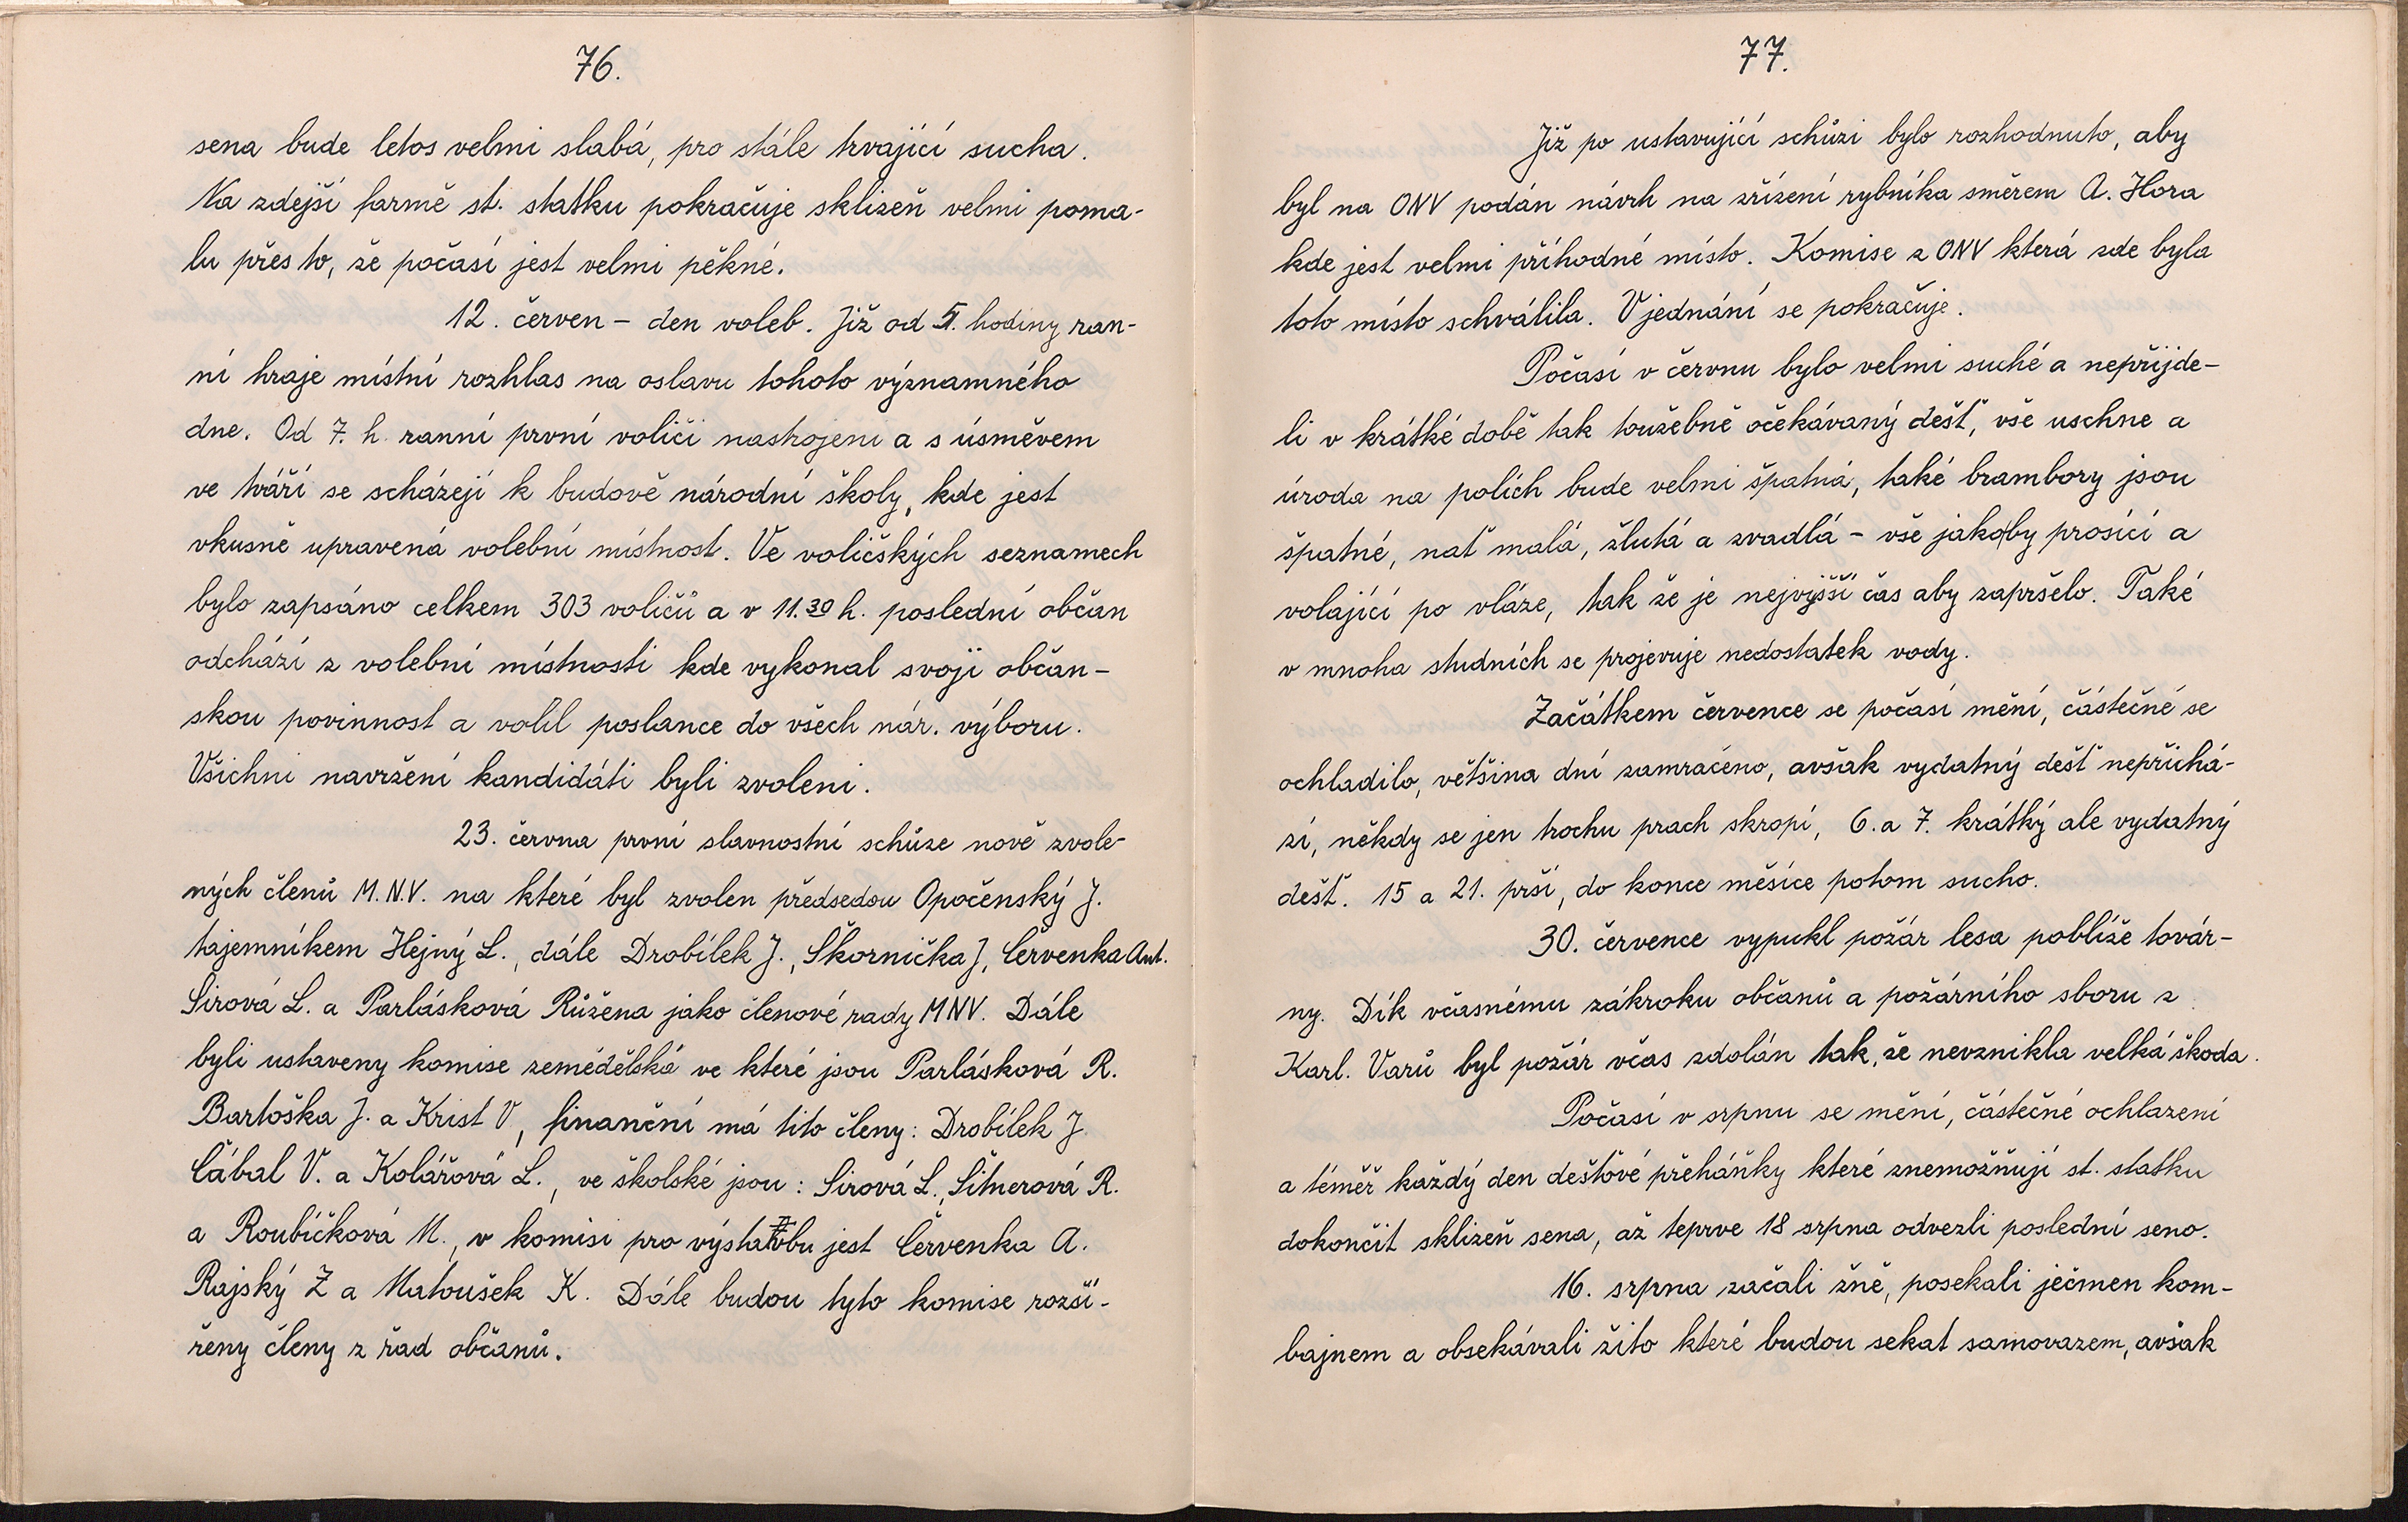 76.
sena bude letos velmi slabá, pro stále trvající sucha.
Na zdejší farmě st. statku pokračuje sklizeň velmi poma-
lu přes to, že počasí jest velmi pěkné.
12. červen – den voleb. Již od 5. hodiny ran-
ní hraje místní rozhlas na oslavu tohoto významného
dne. Od 7. h. ranní první voliči nastrojeni a s úsměvem
ve tváři se scházejí k budově národní školy, kde jest
vkusně upravená volební místnost. Ve voličských seznamech
bylo zapsáno celkem 303 voličů a v 11.30 h. poslední občan
odchází z volební místnosti kde vykonal svoji občan-
skou povinnost a volil poslance do všech nár. výboru.
Všichni navržení kandidáti byli zvoleni.
23. června první slavnostní schůze nově zvole-
ných členů M.N.V. na které byl zvolen předsedou Opočenský J.
tajemníkem Hejný L., dále Drobílek J., Škornička J, Červenka Ant.
Sirová L. a Parlásková Růžena jako členové rady MNV. Dále
byli ustaveny komise zemědělská ve které jsou Parlásková R.
Bartoška J. a Krist V, finanční má tito členy: Drobílek J.
Cábal V. a Kolářová L., ve školské jsou: Sirová L., Šitnerová R.
a Roubíčková M., v komisi pro výstavbu jest Červenka A.
Rajský Z a Matoušek K. Dále budou tyto komise rozší-
řeny členy z řad občanů.
77.
Již po ustavující schůzi bylo rozhodnuto, aby
byl na ONV podán návrh na zřízení rybníka směrem A. Hora
kde jest velmi příhodné místo. Komise z ONV která zde byla
toto místo schválila. V jednání se pokračuje.
Počasí v červnu bylo velmi suché a nepřijde-
li v krátké době tak toužebně očekávaný déšť, vše uschne a
úroda na polích bude velmi špatná, také brambory jsou
špatné, nať malá, žlutá a zvadlá – vše jakoby prosící a
volající po vláze, tak že je nejvyšší čas aby zapršelo. Také
v mnoha studních se projevuje nedostatek vody.
Začátkem července se počasí mění, částečné se
ochladilo, většina dní zamračeno, avšak vydatný déšť nepřichá-
zí, někdy se jen trochu prach skropí, 6. a 7. krátký ale vydatný
déšť. 15 a 21. prší, do konce měsíce potom sucho.
30. července vypukl požár lesa poblíže továr-
ny. Dík včasnému zákroku občanů a požárního sboru z
Karl. Varů byl požár včas zdolán tak, že nevznikla velká škoda.
Počasí v srpnu se mění, částečné ochlazení
a téměř každý den dešťové přeháňky které znemožňují st. statku
dokončit sklizeň sena, až teprve 18 srpna odvezli poslední seno.
16. srpna začali žně, posekali ječmen kom-
bajnem a obsekávali žito které budou sekat samovazem, avšak